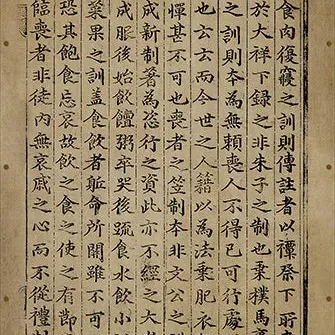 食肉復寢之訓則傳註者以禫祭下所
於大祥下録之非朱子之制也乗樸馬
之訓則夲為無頼喪人不得已可行處
也云云而今世之人籍以為法乗肥衣
憚甚不可也喪者之笠制夲非文公之
成新制著為恣行之資此亦不經之大
成服後始飲饘粥卒哭後疏食水飲小
菜果之訓盖食飲者軀命所關雖不可
恐其飽食忘哀故飲之食之使之有節
臨喪者非徒内無哀戚之心而不從禮